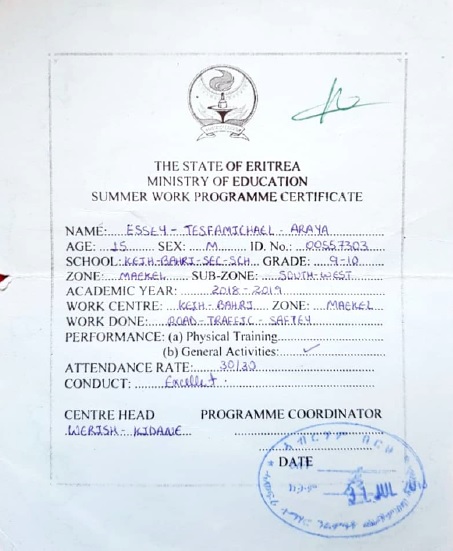 THE STATE OF ERITREA
MINISTRY OF EDUCATION
SUMMER WORK PROGRAMME CERTIFICATE
NAME: ESSEY - TESFAMICHAEL - ARAYA
AGE: 15 SEX: M ID. No.: 00557303
SCHOOL: KEIH-BAHRI-SEC-SCH GRADE: 9-10
ZONE: MAEKEL SUB-ZONE: SOUTH-WEST
ACADEMIC YEAR: 2018 - 2019
WORK CENTRE: KEIH - BAHRI ZONE: MAEKEL
WORK DONE: ROAD - TRAFFIC - SAFTEY
PERFORMANCE: (a) Physical Training
(b) General Activities: ✓
ATTENDANCE RATE: 30/30
CONDUCT: Excellet.
CENTRE HEAD PROGRAMME COORDINATOR
WERISH - KIDANE
DATE
31 JUL